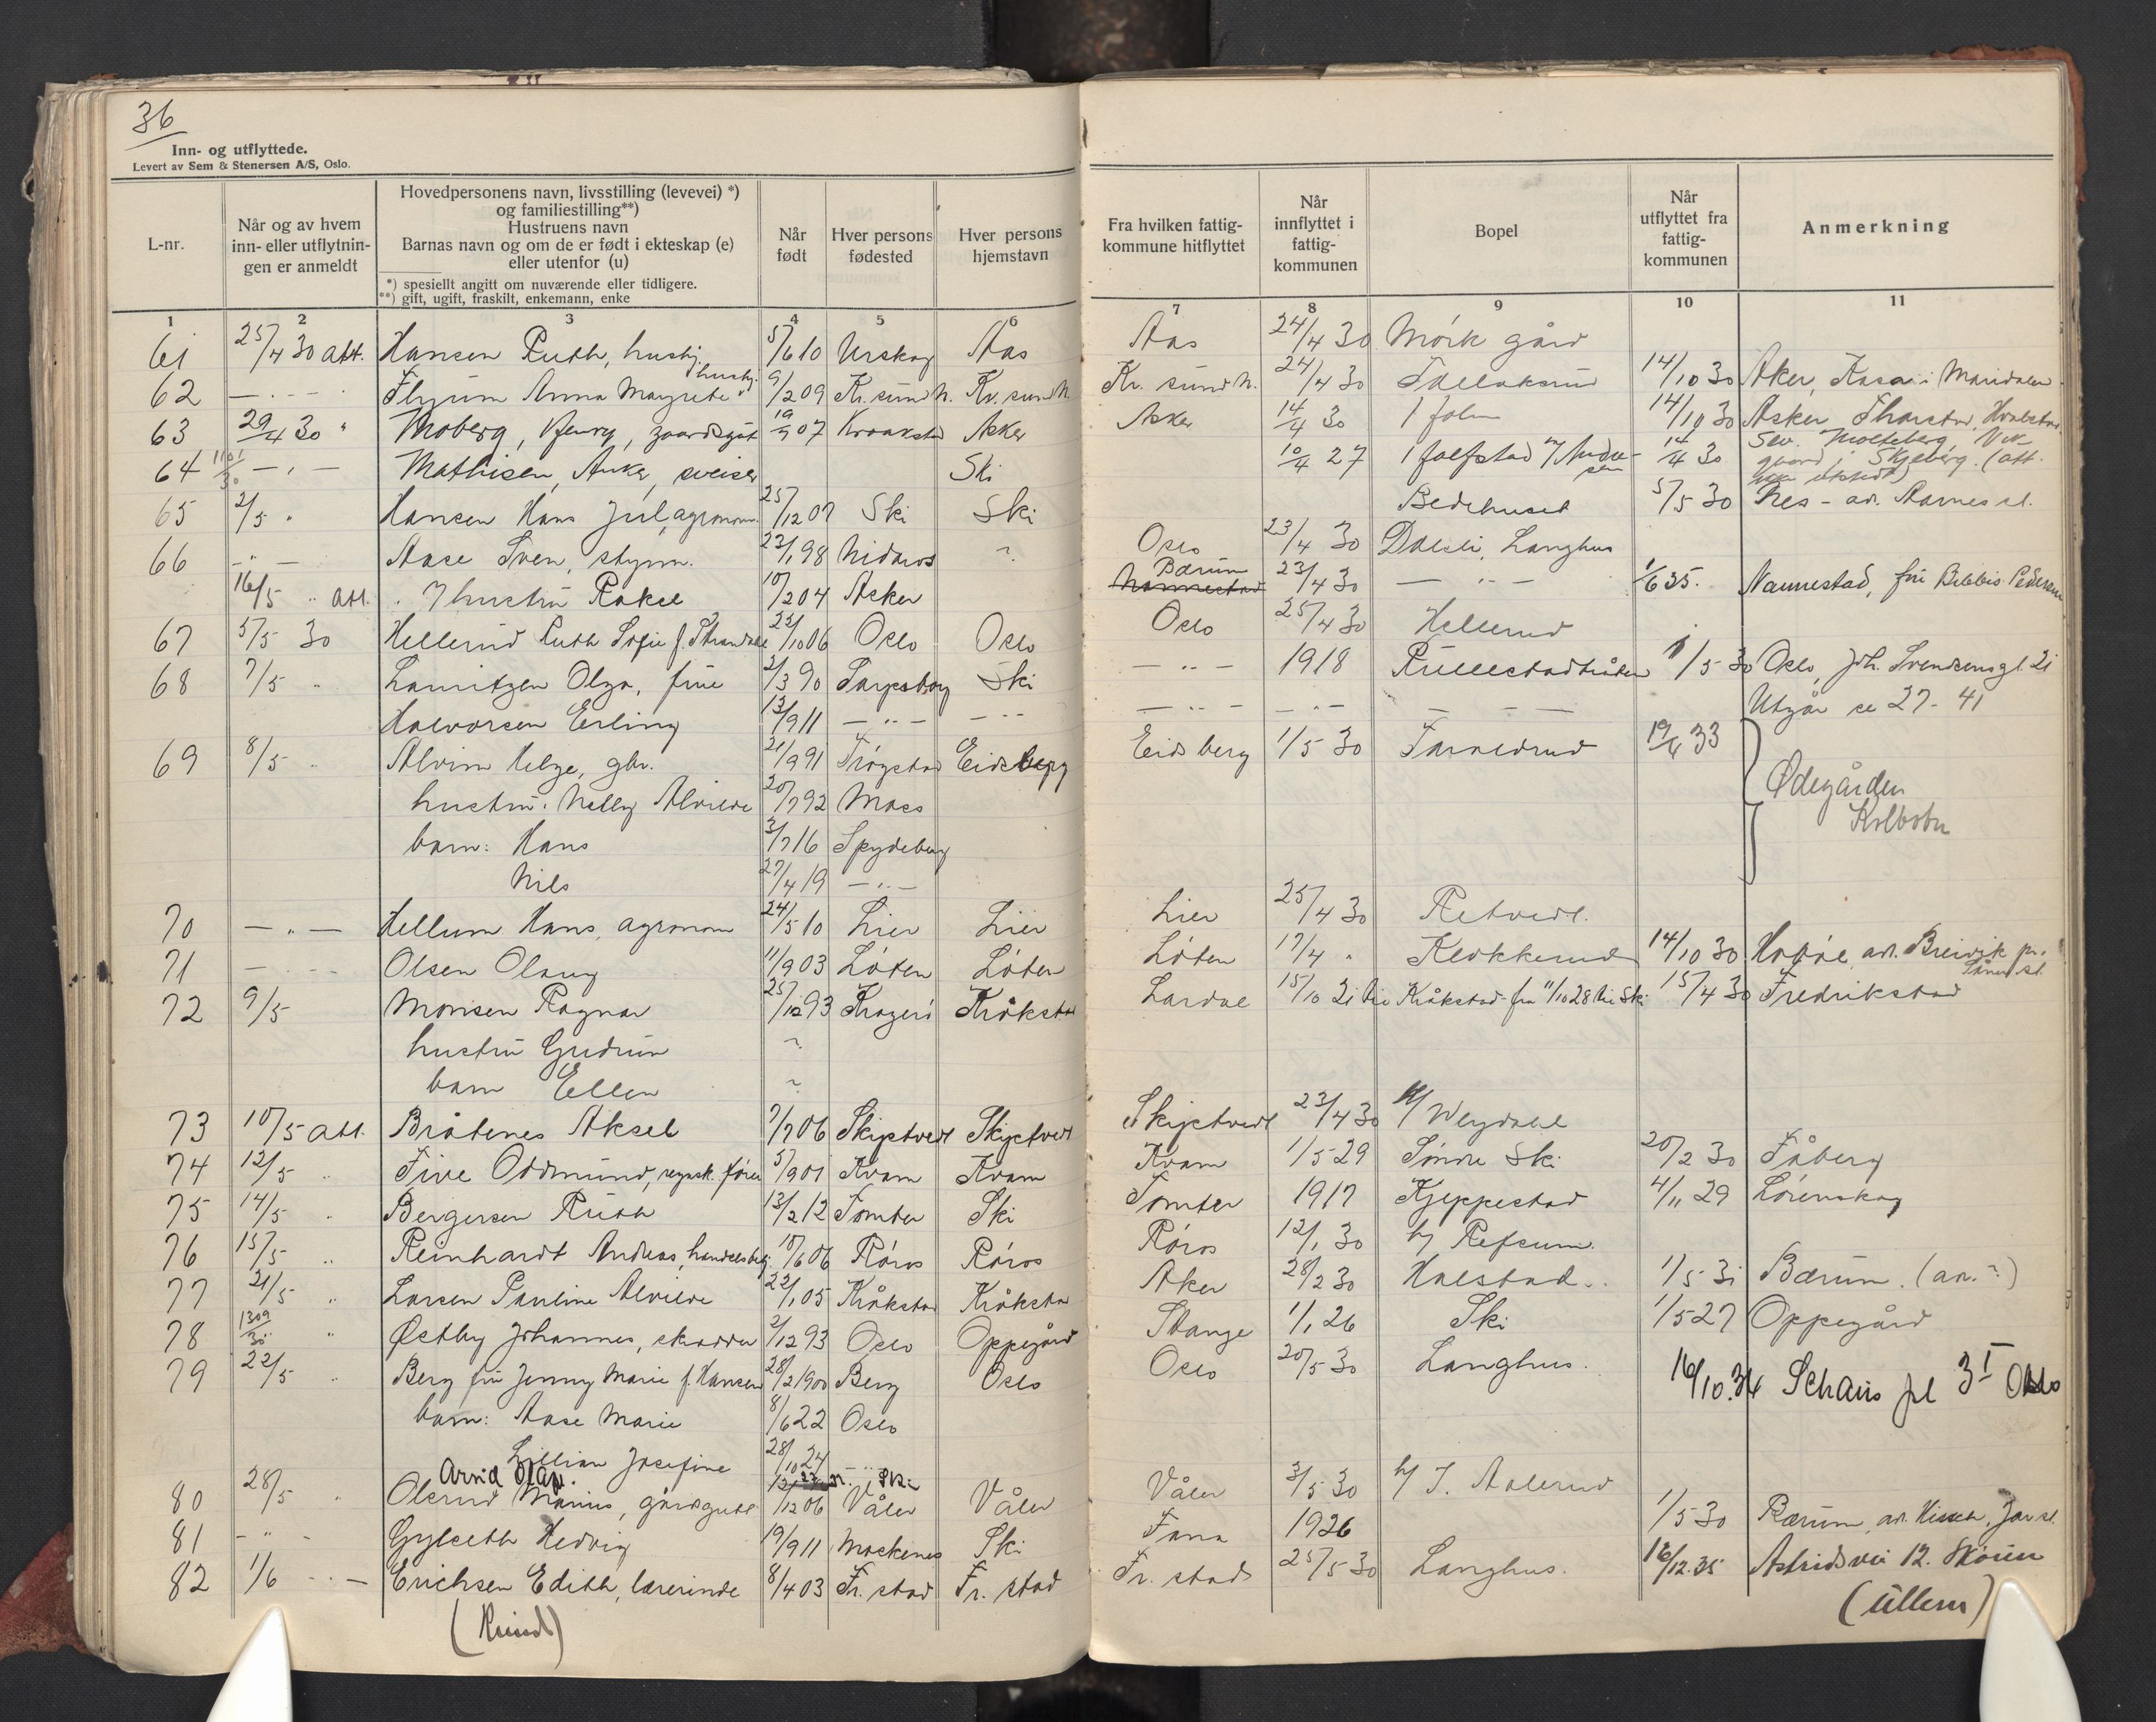 36
Inn- og utflyttede.
Levert av Sem & Stenersen A/S, Oslo.
L-nr.
Når og av hvem inn- eller utflytnin-gen er anmeldt
Hovedpersonens navn, livsstilling (levevei) *)
og familiestilling**)
Hustruens navn
Barnas navn og om de er født i ekteskap (e)
eller utenfor (u)
*) spesiellt angitt om nuværende eller tidligere.
**) gift, ugift, fraskilt, enkemann, enke
Når født
Hver persons fødested
Hver persons hjemstavn
Fra hvilken fattig-kommune hitflyttet
Når innflyttet i fattig-kommunen
Bopel
Når utflyttet fra fattig-kommunen
Anmerkning
1 2 3 4 5 6 7 8 9 10 11
61 25/4 30 att. Hansen Ruth, hushj. 5/6 10 Urskog Aas Aas 24/4 30 Mørk gård
62 — " — Anna Margrete hushj. 9/2 09 Kr. sund N. Kr. sund N. Kr. sund N. 24/4 30 14/10 30 Aker, i Maridalen
63 29/4 30 " Moberg, Henry, gaardsgut 19/9 07 Kraakstad Asker Asker 14/4 30 14/10 30 Asker
64 — " — Mathisen, Anker, sveiser Ski 10/4 27 14/4 30 Molteberg, Vik gaard i Skjeberg. (att. ikke utstedt)
65 2/5 " Hansen Hans Jul, agronom 25/12 07 Ski Ski Bedehuset 5/5 30 Nes - ad. Aarnes st.
66 — " — Aase Sven, styrm. 23/1 98 Nidaros ? Oslo 23/4 30 Dalsli, Langhus
16/5 " att. hustru Raksel 10/2 04 Asker Nannestad Bærum 23/4 30 — " — 1/6 35. Nannestad, fru Pedersen
67 5/5 30 Hellerud Ruth Sofie f. Strandake 23/10 06 Oslo Oslo Oslo 25/4 30 Hellerud
68 7/5 " Lauritzen Olga, frue 2/3 90 Sarpsborg Ski — " — 1918 Rullestadbråten 1/5 30 Oslo, Joh. Svendsensgt. 21
Halvorsen Erling 13/9 11 — " — — " — — " — — " — — — Utgår se 27-41
69 8/5 " Alvim Helge, gbr. 21/9 91 Trøgstad Eidsberg Eidsberg 1/5 30 33
hustru: Nelly Alvilde 20/7 92 Moss
Ødegården
Kolbotn
barn: Hans 3/7 16 Spydeberg
Nils 27/4 19 — " —
70 — " — Hellum Hans, agronom 24/5 10 Lier Lier Lier 25/4 30 Retvedt.
71 — " — Olsen Olaug 11/9 03 Løten Løten Løten 17/4 " Klokkerud 14/10 30 Hobøl, ad. Breivik pr.
72 9/5 Monsen Ragnar 25/12 93 Kragerø Kråkstad Lardal 15/10 21 til Kråkstad - fra 11/10 28 til Ski 15/4 30 Fredrikstad
hustru Gudrun ?
barn Ellen ?
73 10/5 att. Bråtenes Aksel 7/7 06 Skiptvedt Skiptvedt Skiptvedt 23/4 30 Weydahl
74 12/5 " Five Oddmund, regnsk. fører 5/9 01 Kvam Kvam Kvam 1/5 29 Søndre Ski 20/2 30 Fåberg
75 14/5 " Bergersen Ruth 13/2 12 Tomter Ski Tomter 1917 Kjeppestad 4/11 29 Lørenskog
76 15/5 " Reinhardt Andreas, handelsbetj. 10/6 06 Røros Røros Røros 12/1 30 h/ Refsum.
77 21/5 " Larsen Pauline Alvilde 22/1 05 Kråkstad Kråkstad Aker 28/2 30 Halstad. 1/5 31 Bærum. (an. ?)
78 1309/30 " Østby Johannes, skredder 2/12 93 Oslo Oppegård Stange 1/1 26 Ski 1/5 27 Oppegård
79 22/5 " Berg fru Jenny Marie f. Hansen 28/2 1900 Berg Oslo Oslo 20/5 30 Langhus. 16/10.34 Schaus pl 3 I Oslo
barn: Aase Marie 8/6 22 Oslo
Lillian Josefine 28/10 24 — " —
Arvid Olav. Ski
80 28/5 " Olsrud Marius, gårdsgutt 12/12 06 Våler Våler Våler 3/5 30 h/ J. Aslerud
81 — " — Gylseth Hedvig 19/9 11 Moskenes Ski Fana 1926 1/5 30 Bærum, ad. Jar st.
82 1/6 — " — Erichsen Edith, lærerinde 8/4 03 Fr. stad Fr. stad Fr. stad 25/5 30 Langhus. 16/12.35 Astridsvei 12. Skøien
(Ullern)